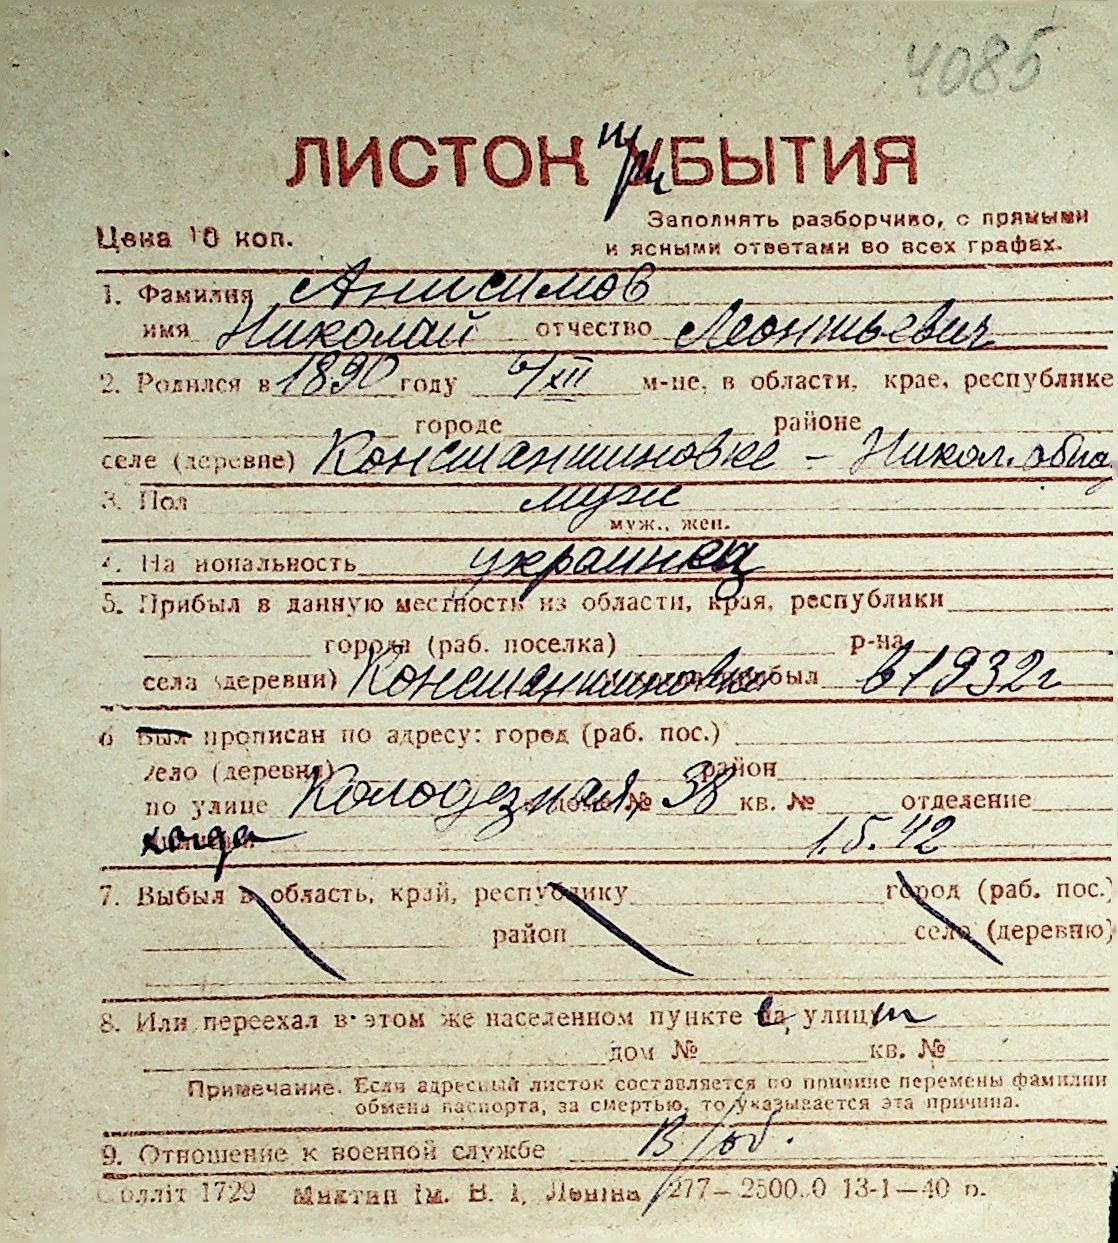 4085
ЛИСТОК при БЫТИЯ
Цена 10 коп.
Заполнять разборчиво, с прямыми
и ясными ответами во всех графах.
1. Фамилия Анисимов
имя Николай отчество Леонтьевич
2. Родился в 1890 году 6/XII м-це, в области, крае, республике
городе районе
селе (деревне) Константиновке – Никол. обла
3. Пол муж
муж., жен.
4. На иональность украинец
5. Прибыл в данную местность из области, края, республики
города (раб. поселка) р-на
села (деревни) Константиновка прибыл в 1932 г
6 Был прописан по адресу: город (раб. пос.)
село (деревня) район
по улице Колодезная, № 38 кв. № отделение
когда 1.5.42
7. Выбыл в область, край, республику город (раб. пос.)
район село (деревню)
8. Или переехал в этом же населенном пункте на улицу
дом № кв. №
Примечание. Если адресный листок составляется по причине перемены фамилии
обмена паспорта, за смертью, то указывается эта причина.
9. Отношение к военной службе в/об.
Облліт 1729 Миктип ім. В. І. Леніна 277— 2500.0 13-1—40 р.